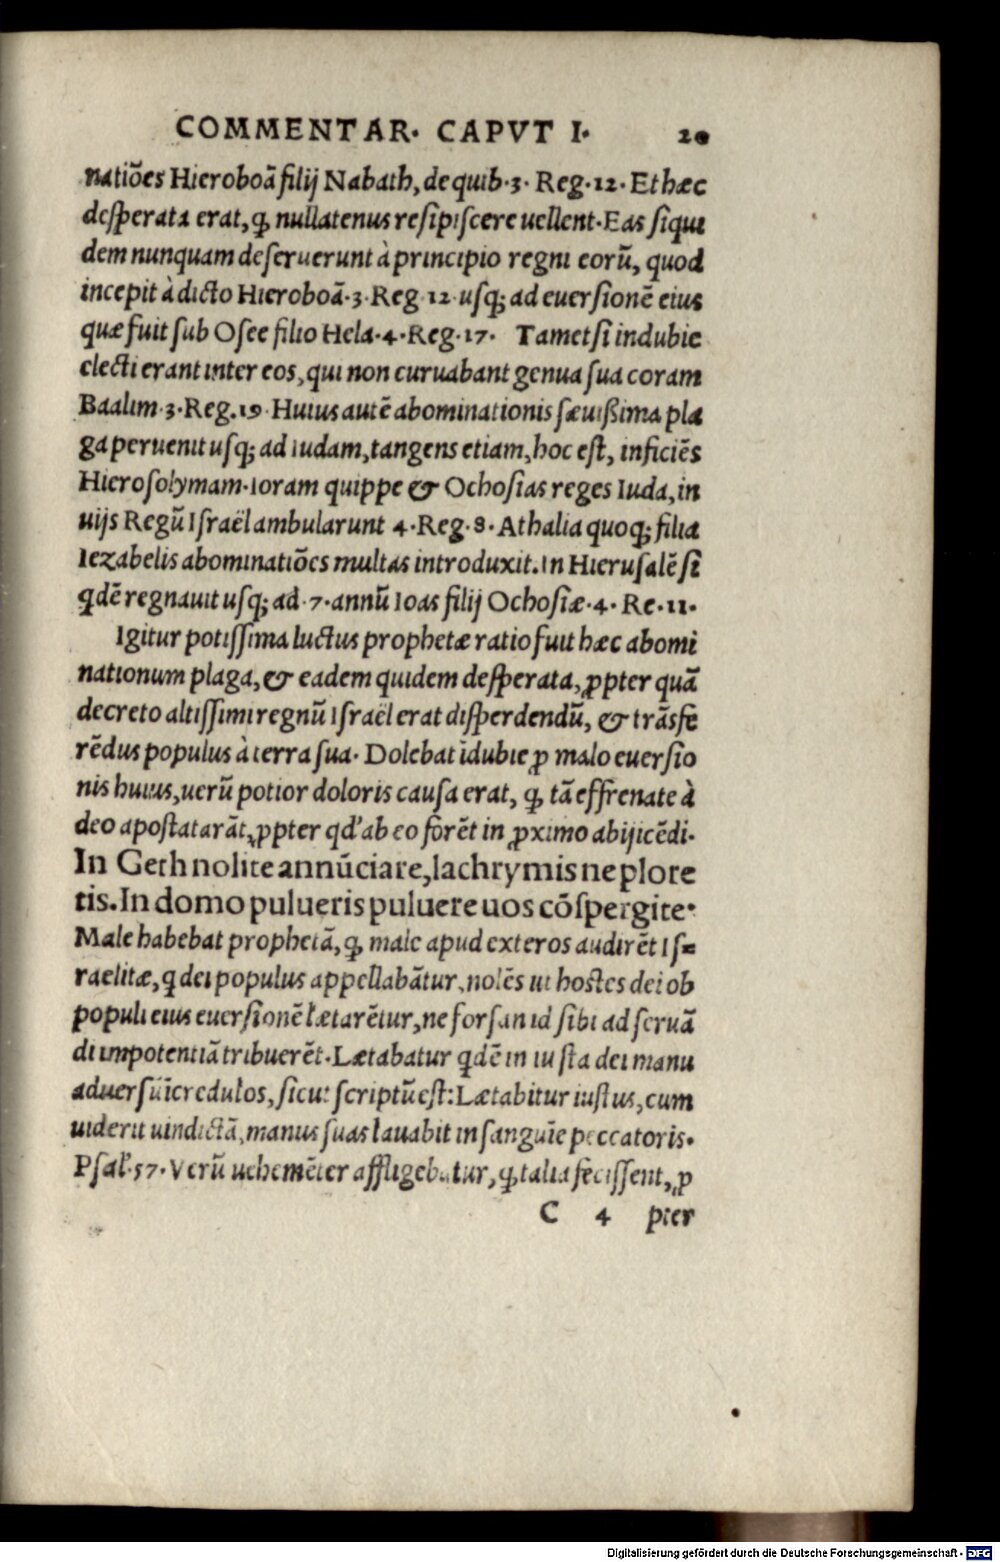 COMMENTAR. CAPVT I. 20
natiões Hieroboã filij Nabath, de quib.3. Reg.12. Et hæc
desperata erat, ꝙ nullatenus resipiscere uellent. Eas siqui
dem nunquam deseruerunt à principio regni eorũ, quod
incepit à dicto Hieroboã.3.Reg 12 usq; ad euersionẽ eius
quæ fuit sub Osee filio Hela.4.Reg.17. Tametsi indubie
electi erant inter eos, qui non curuabant genua sua coram
Baalim.3.Reg.19 Huius autẽ abominationis sæuißima pla
ga peruenit usq; ad Iudam, tangens etiam, hoc est, inficiẽs
Hierosolymam. Ioram quippe & Ochosias reges Iuda, in
uijs Regũ Israël ambularunt 4.Reg.8. Athalia quoq; filia
Iezabelis abominatiões multas introduxit. In Hierusalẽ si
qdẽ regnauit usq; ad.7.annũ Ioas filij Ochosiæ.4. Re.11.
Igitur potissima luctus prophetæ ratio fuit hæc abomi
nationum plaga, & eadem quidem desperata, ꝓpter quã
decreto altissimi regnũ Israël erat disperdendũ, & trãsfe
rẽdus populus à terra sua. Dolebat ĩdubie ꝓ malo euersio
nis huius, uerũ potior doloris causa erat, ꝙ tã effrenate à
deo apostatarãt, ꝓpter qd' ab eo forẽt in ꝓximo abijcẽdi.
In Geth nolite annũciare, lachrymis ne plore
tis. In domo pulueris puluere uos cõspergite.
Male habebat prophetã, ꝙ male apud exteros audirẽt Is=
raelitæ, q dei populus appellabãtur, nolẽs ut hostes dei ob
populi eius euersionẽ lætarẽtur, ne forsan id sibi ad seruã
di impotentiã tribuerẽt. Lætabatur qdẽ in iusta dei manu
aduersũ ĩcredulos, sicut scriptũ est: Lætabitur iustus, cum
uiderit uindictã, manus suas lauabit in sanguĩe peccatoris.
Psal.57. Verũ uehemẽter affligebatur, ꝙ talia fecissent, ꝓ
C 4 pter
Digitalisierung gefördert durch die Deutsche Forschungsgemeinschaft - DFG